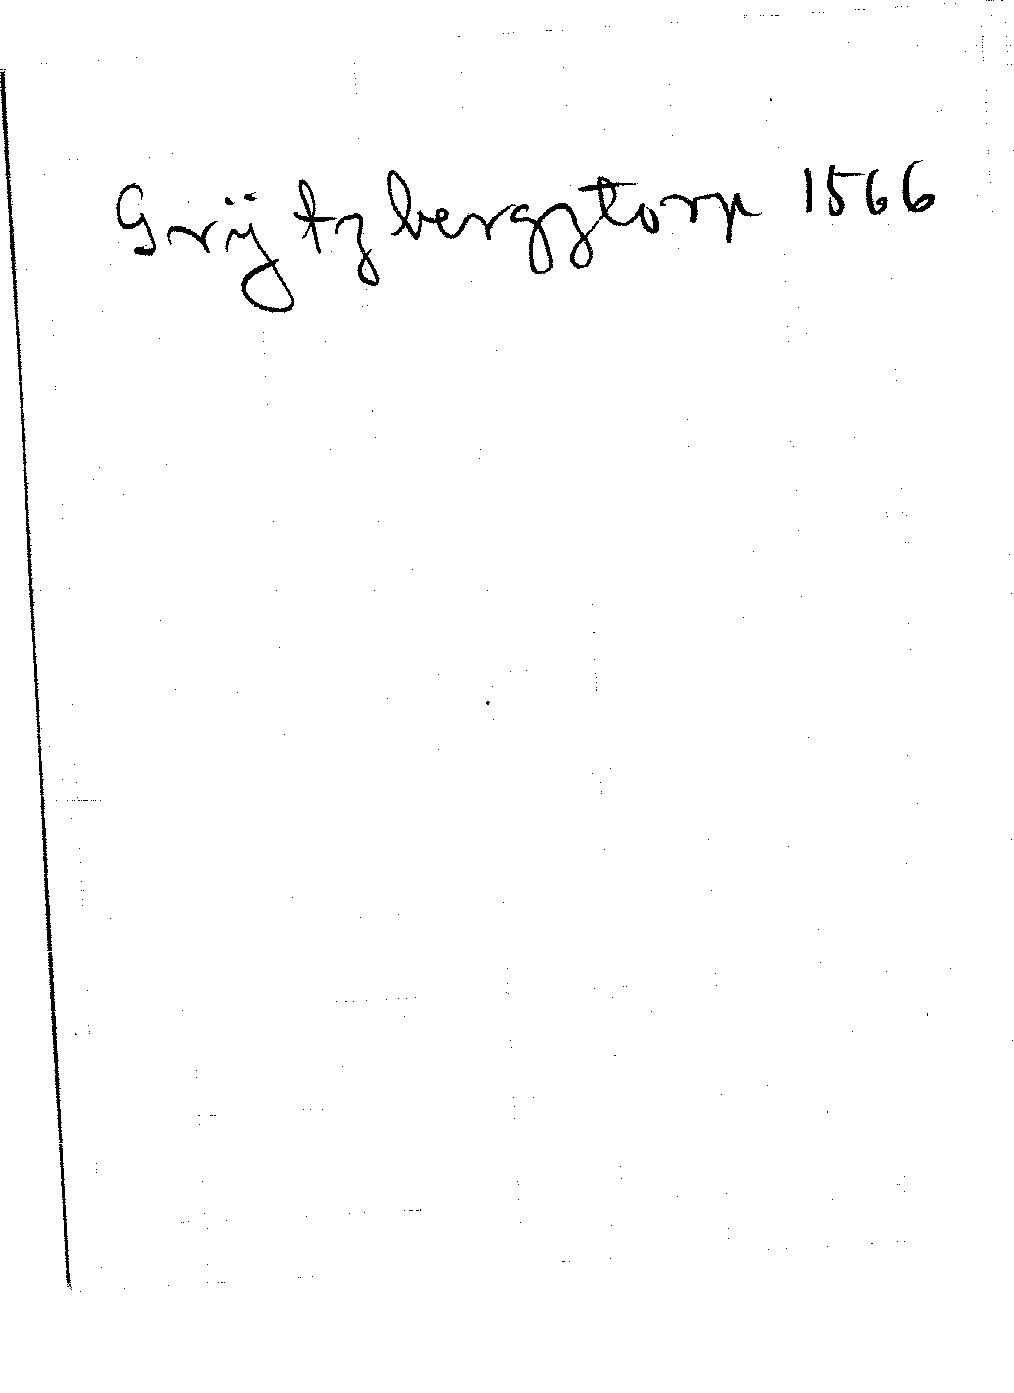 Grijtzbergztorp 1566